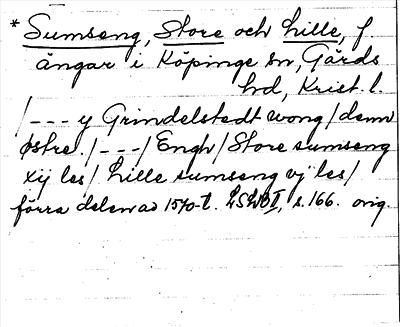 * Sumseng, Store och Lille, f
ängar i Köpinge sn, Gärds
hd, Krist. l.
/--- y Grindelstedt wong/denn
østre./---/Engh/Store sumseng
xij les/ Lille sumseng vj les/
förra delen av 1570-t. LSWDII, s.166. orig.